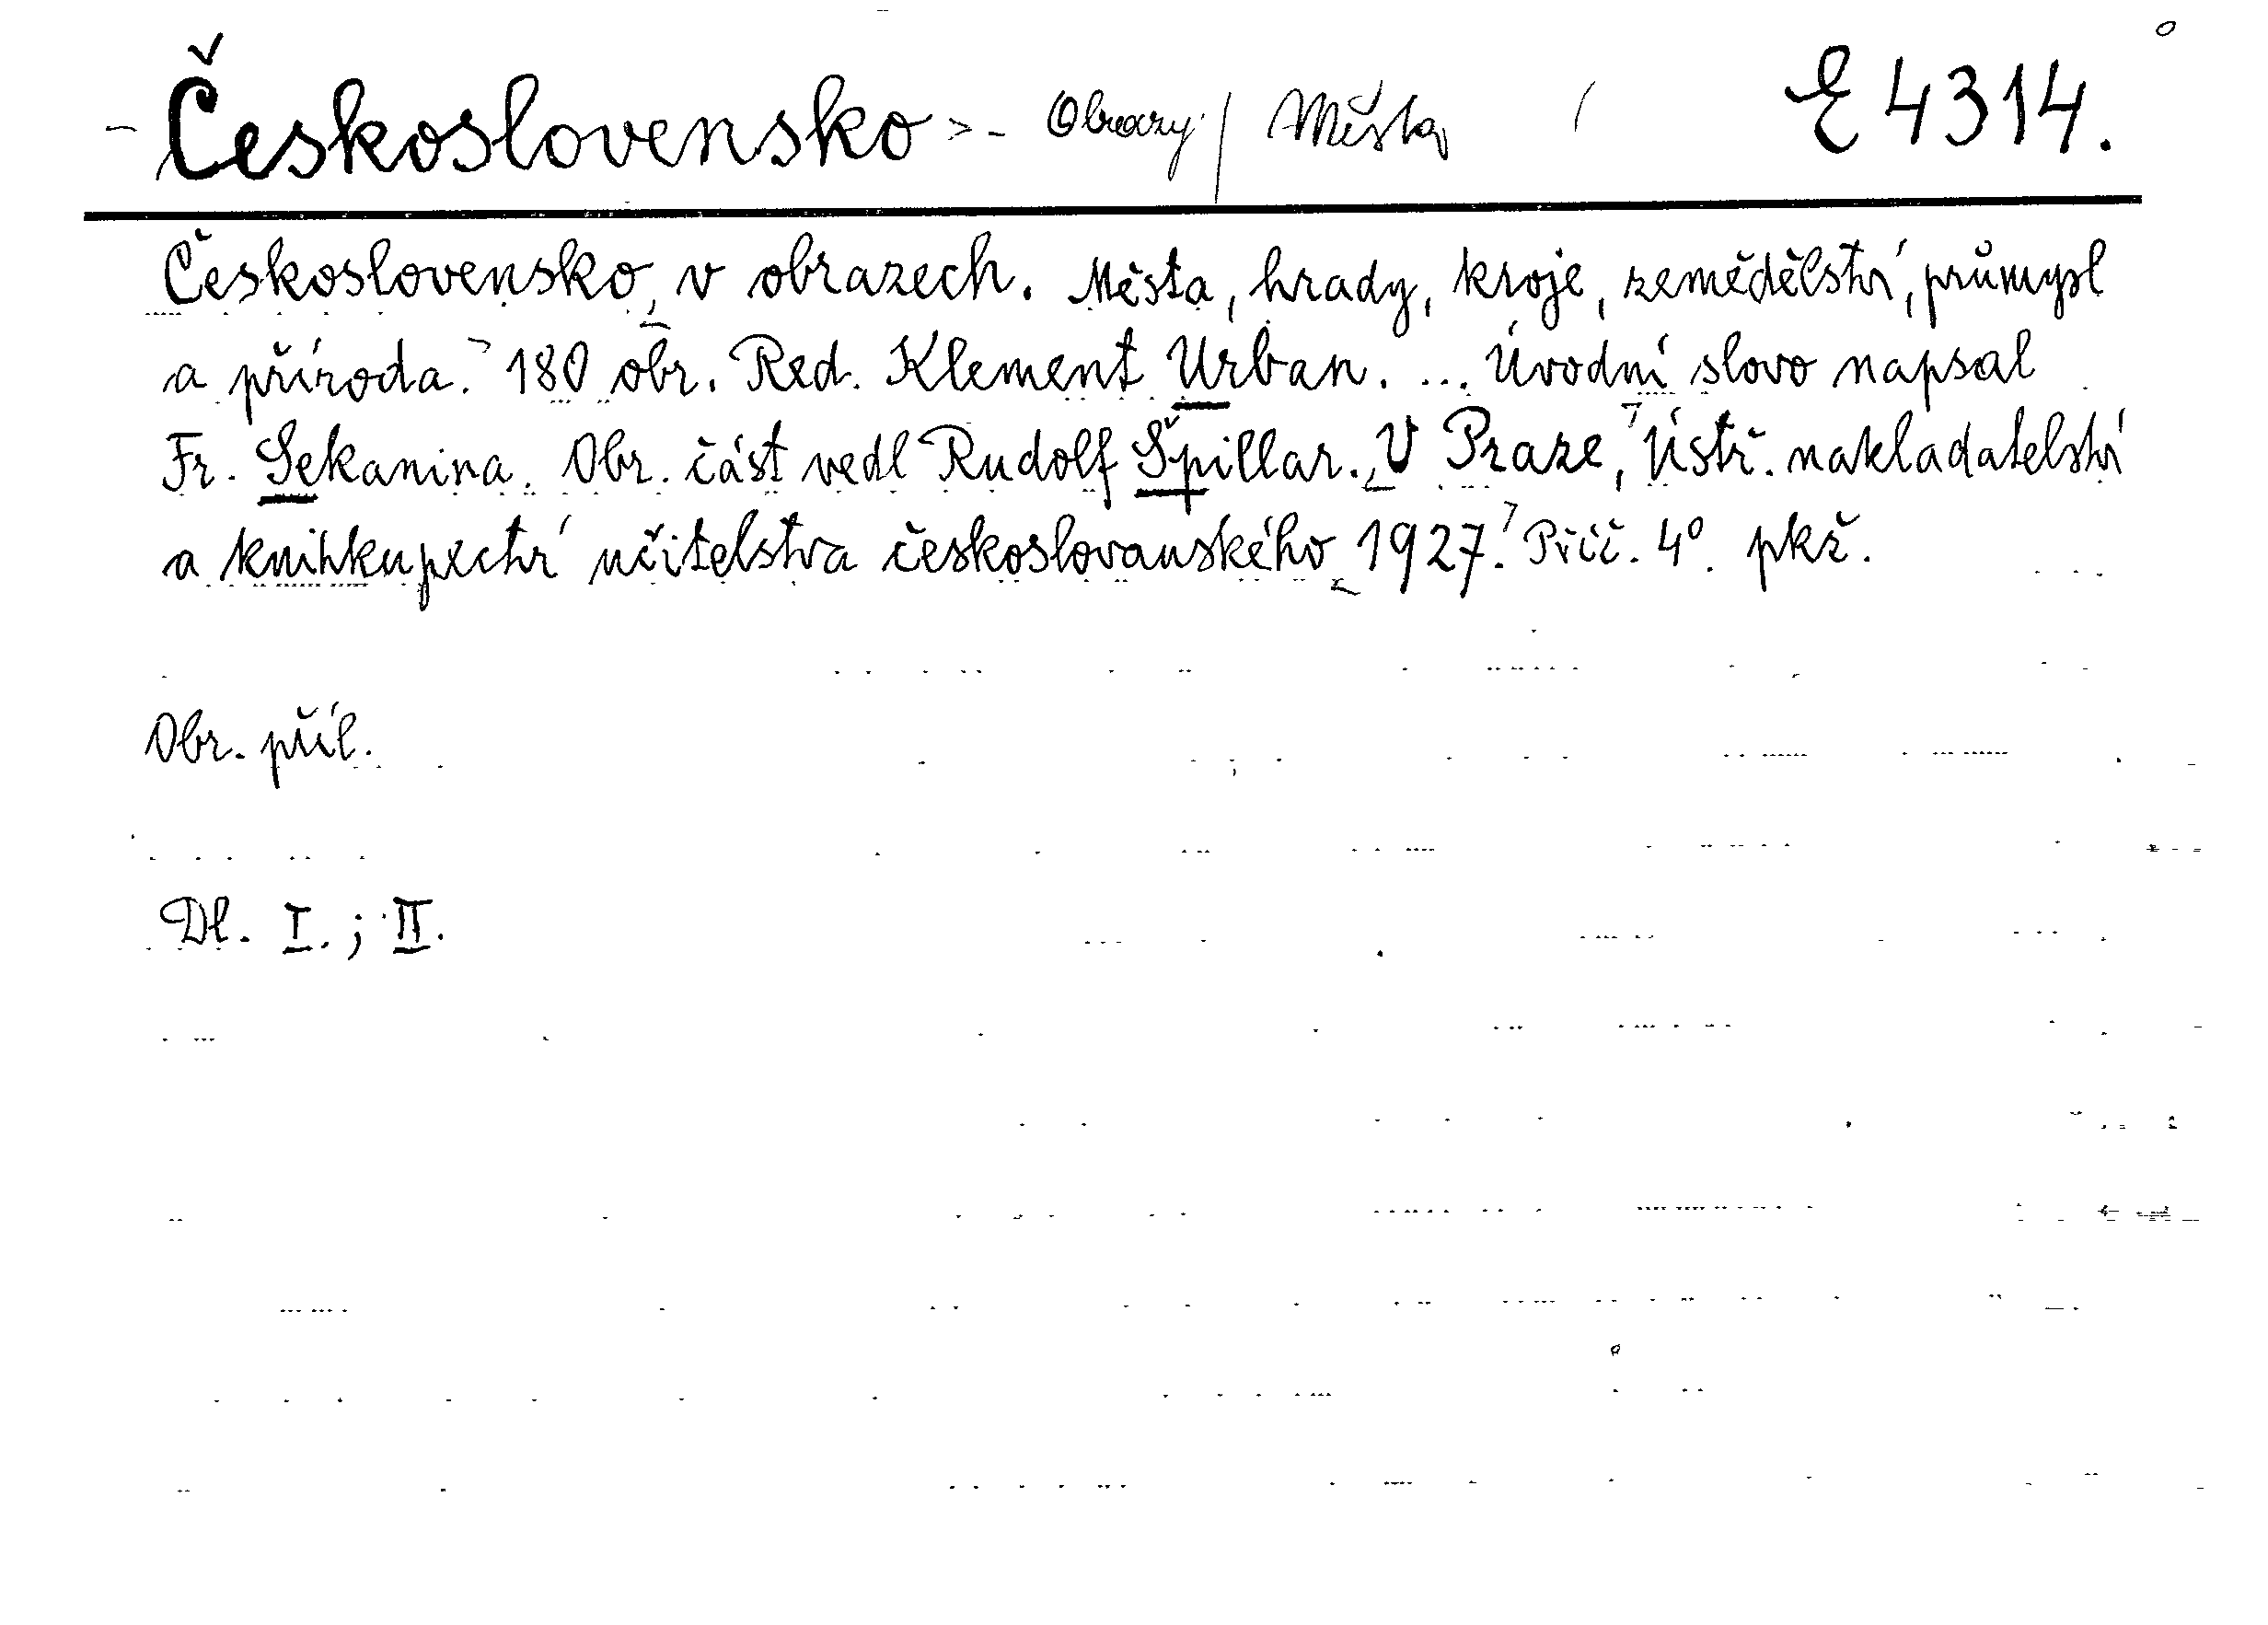 Československo - Obrazy / Města E 4314.
Československo v obrazech. Města, hrady, kroje, zemědělství, průmysl
a příroda. 180 obr. Red. Klement Urban. ... Úvodní slovo napsal
Fr. Sekanina. Obr. část vedl Rudolf Špillar. V Praze, Ústř. nakladatelství
a knihkupectví učitelstva českoslovanského 1927. Příč. 4⁰. pkž.
Obr. příl.
Dl. I.; II.